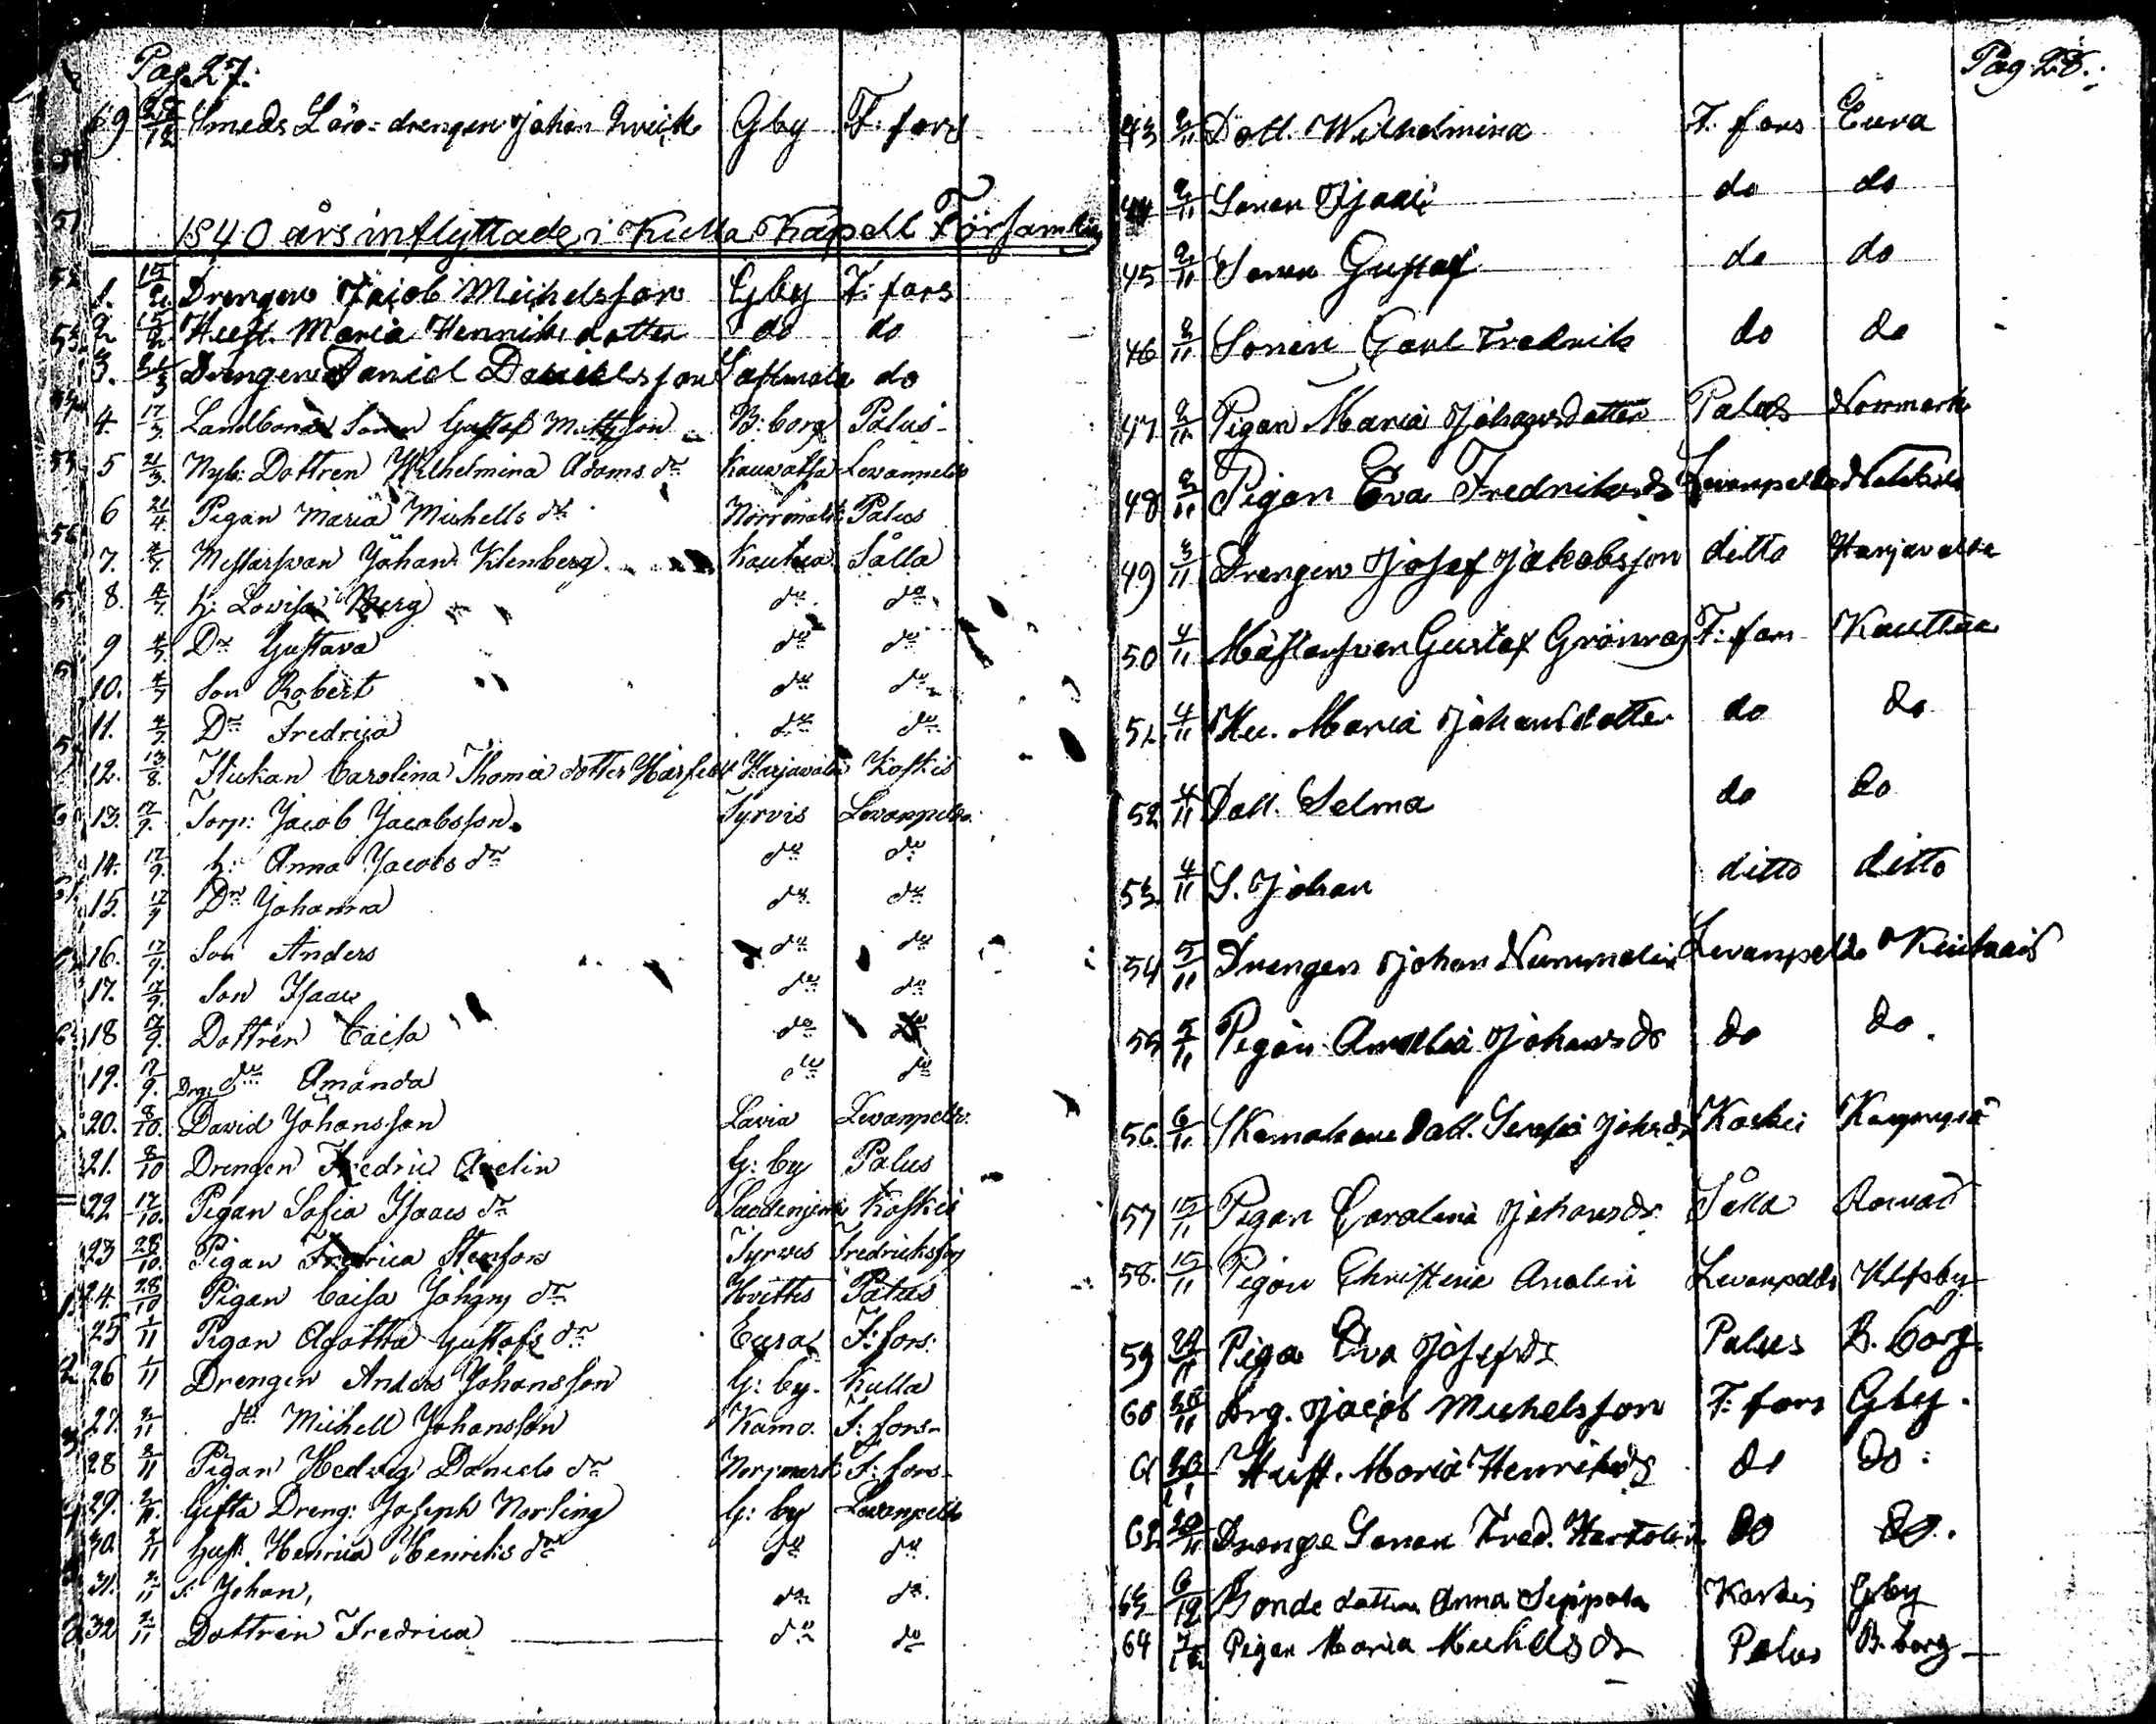 Pag. 27:
69 28/12 Smeds Läro=drengen Johan Qveick Gby F: fors
1840 års inflyttade i Kulla Kapell Församling
1. 15/2 Drengen Jacob Michelsson Gby F: fors
2 15/2 Hust. Maria Henriks dotter do do
3. 21/3 Drengen Daniel Danielsson Sastmola do
4. 17/3. Landbonde Sonen Gustaf Mattsson B: borg Palus
5 21/3. Nyb: Dottren Wilhelmina Adams dr Kauvatsa Levanpelto
6 21/4. Pigan Maria Michells dr Norrmark Palus
7. 4/7. Mästersven Johan Klenberg Kautua Sålla
8. 4/7. h: Lovisa Berg do do
9 4/7. Dr Gustava do do
10. 4/7 Son Robert do do
11. 4/7 Dr Fredrica do do
12. 13/8. Flickan Carolina Thomæ dotter Härfelt Harjavalta Koskis
13. 17/9. Torp: Jacob Jacobsson. Tyrvis Levanpelto
14. 17/9. h: Anna Jacobs dr do do
15. 17/9 Dr Johanna do do
16. 17/9. Son Anders do do
17. 17/9. Son Isaac do do
18 17/9. Dottren Caisa do do
19. 17/9. do Amanda do do
20. 8/10. Drg: David Johansson Lavia Levanpelto
21. 8/10 Drengen Fredric Avelin G: by Palus
22 17/10. Pigan Sofia Isaacs dr Saadenjerwi Koskis
23 28/10. Pigan Fredrica Stenfors Tyrvis Fredricksfors
24. 28/10 Pigan Caisa Johans dr Hvittis Palus
25 1/11 Pigan Agatha Gustafs dr Eura F: fors.
26 1/11 Drengen Anders Johansson G: by. Kulla
27. 2/11 do Michell Johansson Kumo. F: fors
28 2/11 Pigan Hedvig Daniels dr Norrmark F: fors
29. 2/11. Gifta Dreng: Joseph Norling G: by Levanpelto
30. 2/11 Hust. Henrica Henriks dr do do
31. 2/11 s: Johan, do do
32 2/11 Dottren Fredrica do do
Pag. 28.:
43 2/11 Dott. Wilhelmina F. fors Eura
44 2/11 Sonen Isaac do do
45 2/11 Sonen Gustaf do do
46 2/11 Sonen Carl Fredrik do do
47 2/11 Pigan Maria Johansdotter Palus Normark
48 2/11 Pigan Eva Fredriksdr Levanpelto
49 3/11 Drengen Josef Jakobsson ditto Harjavalta
50 4/11 Mästersven Gustaf Grönros F: fors Kauttua
51. 4/11 Hu. Maria Johansdotter do do
52 4/11 Dott. Selma do do
53 4/11 S. Johan ditto ditto
54 5/11 Drengen Johan Nummelin Levanpelto Kiukais
55 5/11 Pigan Amalia Johansdr do do
56. 6/11 Skomakare Dott. Serafia Johsdr Koskis
57 15/11 Pigan Carolina Johansdr Sålla
58. 15/11 Pigan Christina Avelin Levanpelto Ulfsby
59 24/11 Piga Eva Josefsdr Palus B. borg.
60 28/11 Drg. Jacob Michelsson F: fors Gby.
61 28/11 Hust. Maria Henriksdr do do:
62 28/11 Drenge Sonen Fred. Hertolin do do.
63 6/12 Bonde dottren Anna Seppola Koskis Gby
64 7/12 Pigan Maria Michelsdr Palus B. borg